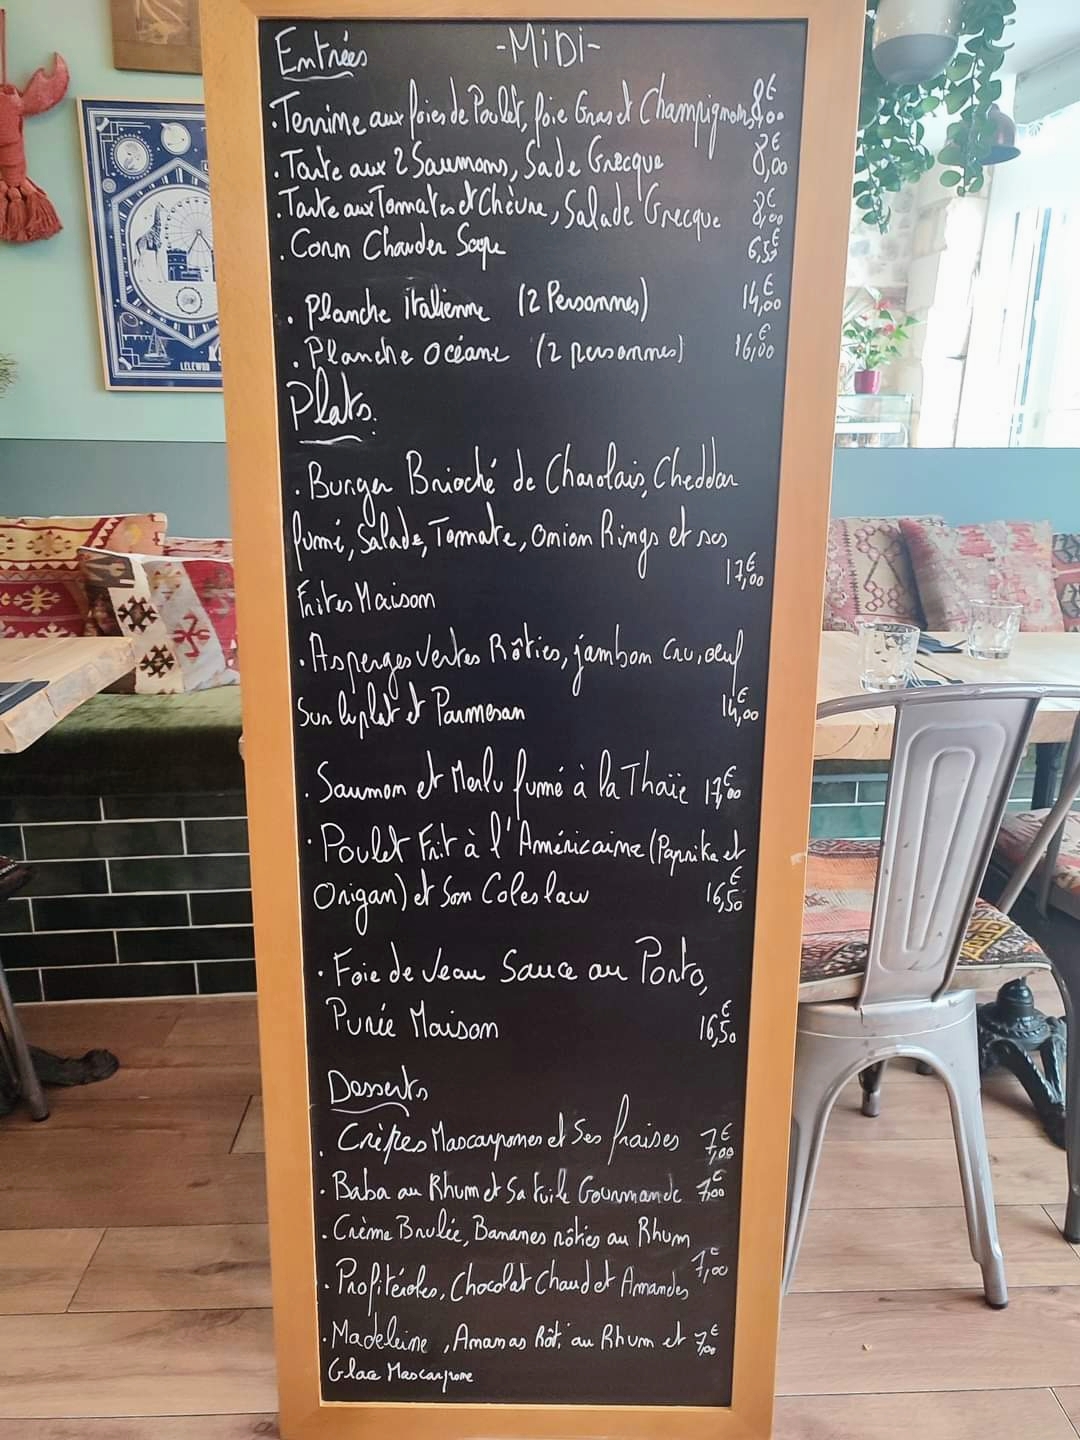 -MiDi-
Entrées
.Terrine aux foies de Poulet, foie Gras et Champignons 8,00€
.Tarte aux 2 Saumons, Sade Grecque 8,00€
.Tarte aux Tomates et Chèvre, Salade Grecque 8,00€
.Corn Chawder Soupe 6,5€
. Planche italienne (2 Personnes) 14,00€
. Planche Océane (2 personnes) 16,00€
Plats.
. Burger Brioché de Charolais, Cheddar
fumé, Salade, Tomate, Onion Rings et ses
17,00€
Frites Maison
.Asperges Vertes Rôties, jambon Cru, oeuf
Sur le plat et Parmesan 14,00€
. Saumon et Merlu fumé à la Thaïe 17,00€
. Poulet Frit à l'Américaine (Paprika et
Origan) et Son Coleslaw 16,50€
. Foie de Veau Sauce au Porto,
Purée Maison 16,50€
Desserts
. Crèpes Mascarpones et Ses fraises 7,00€
. Baba au Rhum et Sa tuile Gourmande 7,00€
. Crème Brulée, Bananes rôties au Rhum
7,00€
. Profitéroles, Chocolat Chaud et Amandes
. Madeleine, Ananas Rôti au Rhum et 7,00€
Glace Mascarpone
LELEWOO